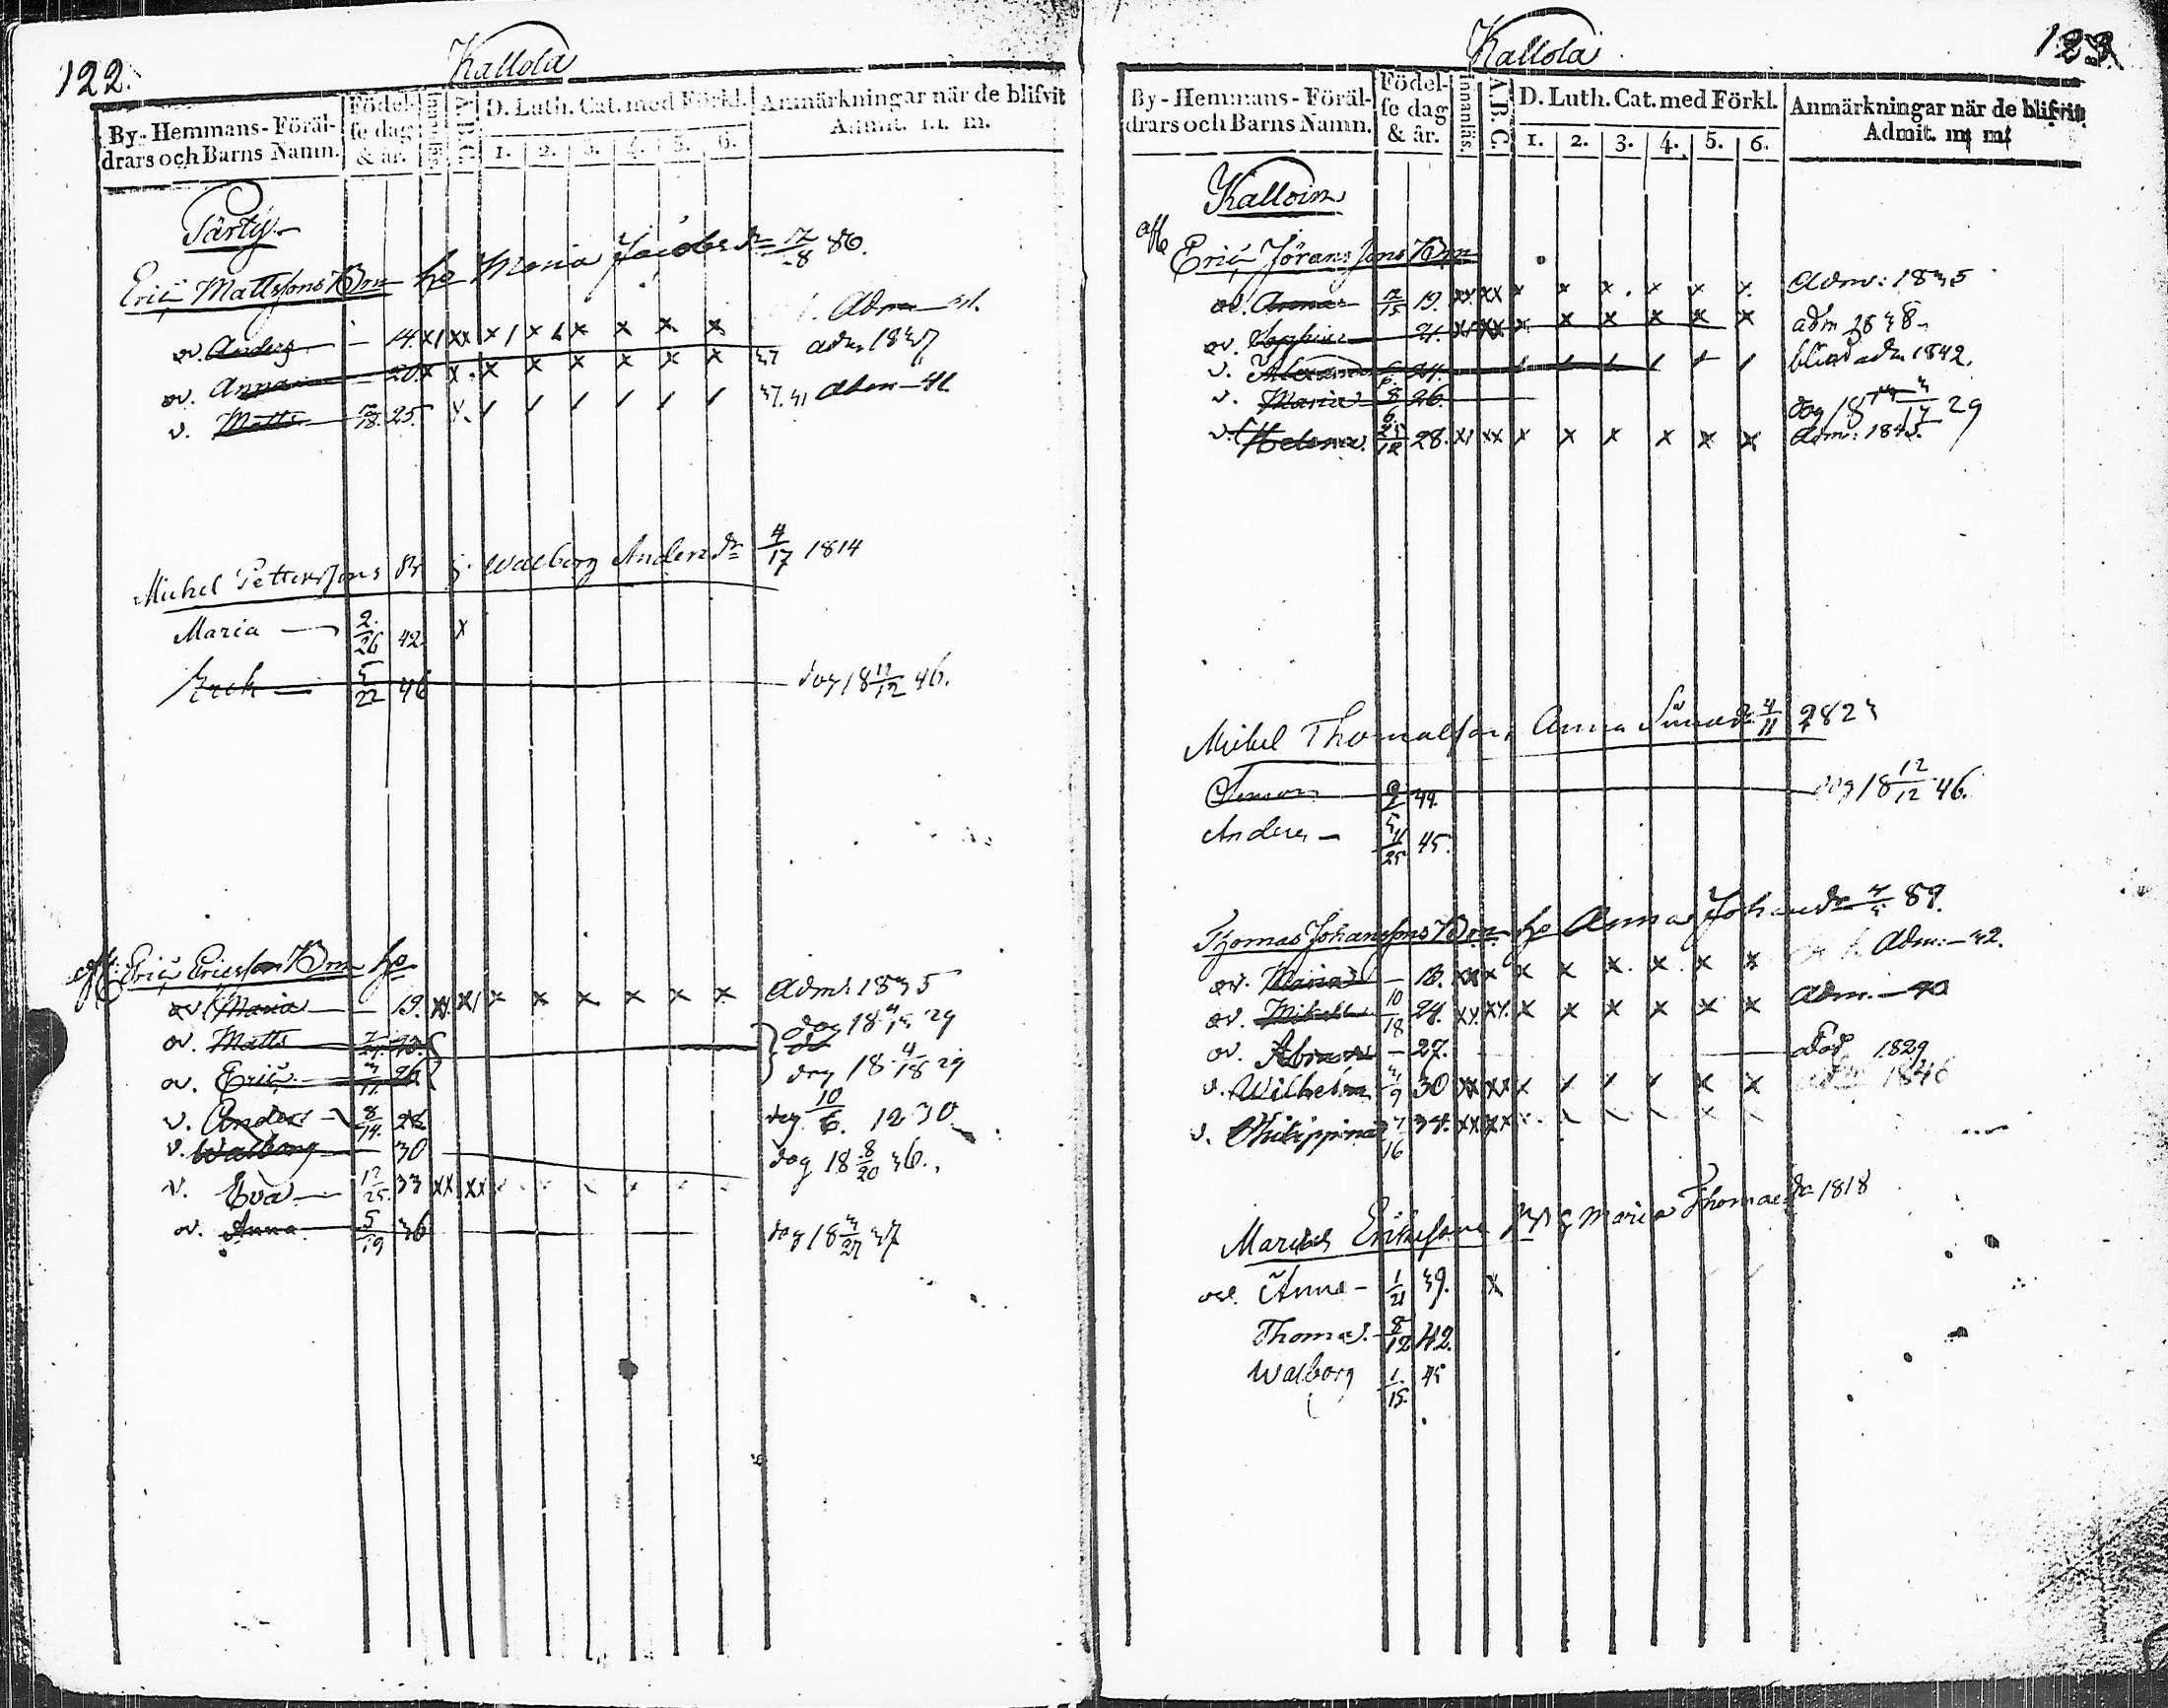 122.
Kallola
By-Hemmans-Föräl-
drars och Barns Namn.
Födel-
se dag
& år.
A.B.C.
D. Luth. Cat. med Förkl.
1. 2. 3. 4. 5. 6.
Anmärkningar när de blifvit
Admit. m. m.
Pärty
Eric Mattssons Brn ho Maria Jacobsdr 12/8 80.
ov. Anders — 14. x xx x x x x x x Adm — 41.
ov. Anna — 20. x x x x x x x x adm 1837
v. Matts 25. 37.41 Adm — 41
Michel Petterssons Br Walborg Andersdr 4/17 1814
Maria — 2/26 42. x
Erick — 5/22 46 dog 18 11/12 46.
Eric Ericsson Brn ho
ov Maria — 19. xx xx x x x x x x Adm: 1835
ov. Matts dog 18 29
ov. Eric dog 18 4/18 29
v. Anders — 8/14. dog 10/6. 1830
v. Walborg — 30 dog 18 8/20 36.
v. Eva — 12/25. 33 xx xx
ov. Anna 5/19 36 dog 18 3/27 37
123
Kallola
By-Hemmans-Föräl-
drars och Barns Namn.
Födel-
se dag
& år.
Innanläs.
A.B.C.
D. Luth. Cat. med Förkl.
1. 2. 3. 4. 5. 6.
Anmärkningar när de blifvit
Admit. m. m.
Kalloin
Eric Jöranssons Brn
ov. Anna 12/15 19. xx xx x x x x x x Adm: 1835
ov. Sophia 21. xx xx x x x x x x adm 1838
v. 24. blind adm 1842.
v. Maria 8/6 26. dog 18 3/17 29
v. Helena 28. xx xx x x x x x x Adm: 1845.
Michel Thomasson, Anna 1823
Simon 44. dog 18 12/12 46.
Anders — 11/25 45.
Thomas Johanssons Brn ho Anna Johansdr 89.
ov. Maria — 18. xx x x x x x x x Adm: — 42.
ov. Mikell 10/18 24. xx xx. x x x x x x Adm. — 40
ov. Abram — 27. död 1829
v. Wilhelm 3/9 30 xx xx x x x x x x 1846
v. Philippina 7/16 34. xx xx
Erikssons Maria Thomasdr 1818
Anna — 1/21 39. x
Thomas. 8/12 42.
Walborg 1/15. 45